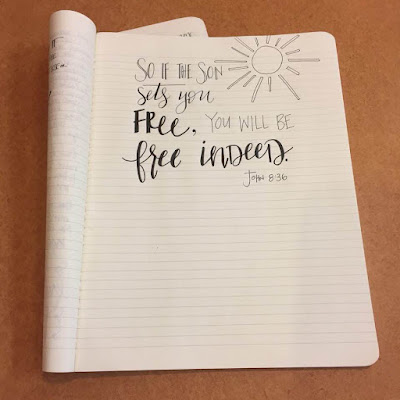 SO IF THE SON
sets you
FREE, YOU WILL BE
free indeed.
JOHN 8:36